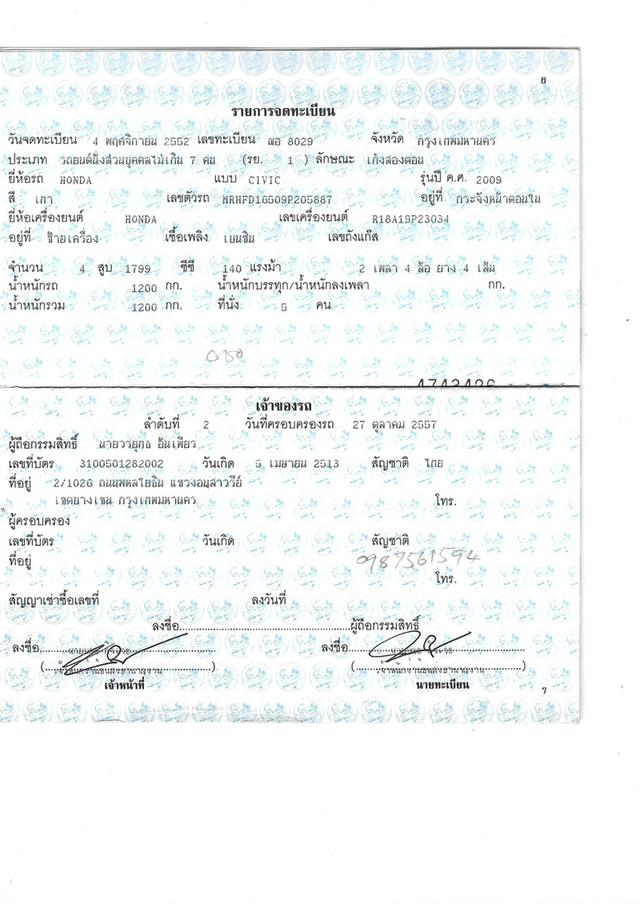 รายการจดทะเบียน
วันจดทะเบียน 4 พฤศจิกายน 2552 เลขทะเบียน 8029 จังหวัด กรุงเทพมหานคร
ประเภท รถยนต์นั่งส่วนบุคคลไม่เกิน 7 คน (รย. 1 ) ลักษณะ เก๋งสองตอน
ยี่ห้อรถ HONDA แบบ CIVIC รุ่นปี ค.ศ. 2009
สี เทา เลขตัวรถ MRHFD16509P205887 อยู่ที่ กระจังหน้าตอนใน
ยี่ห้อเครื่องยนต์ HONDA เลขเครื่องยนต์ R18A19P23034
อยู่ที่ ซ้ายเครื่อง เชื้อเพลิง เบนซิน เลขถังแก๊ส
จำนวน 4 สูบ 1799 ซีซี 140 แรงม้า 2 เพลา 4 ล้อ ยาง 4 เส้น
น้ำหนักรถ 1200 กก. น้ำหนักบรรทุก/น้ำหนักลงเพลา กก.
น้ำหนักรวม 1200 กก. ที่นั่ง 5 คน
เจ้าของรถ
ลำดับที่ 2 วันที่ครอบครองรถ 27 ตุลาคม 2557
ผู้ถือกรรมสิทธิ์ นายวรายุทธ อินเพียร
เลขที่บัตร 3100501282002 วันเกิด 5 เมษายน 2513 สัญชาติ ไทย
ที่อยู่ 2/1026 ถนนพหลโยธิน แขวงอนุสาวรีย์
เขตบางเขน กรุงเทพมหานคร โทร.
ผู้ครอบครอง
เลขที่บัตร วันเกิด สัญชาติ
ที่อยู่ 0987561594
โทร.
สัญญาเช่าซื้อเลขที่ ลงวันที่
ลงชื่อ ผู้ถือกรรมสิทธิ์
ลงชื่อ ลงชื่อ
เจ้าหน้าที่ นายทะเบียน
7